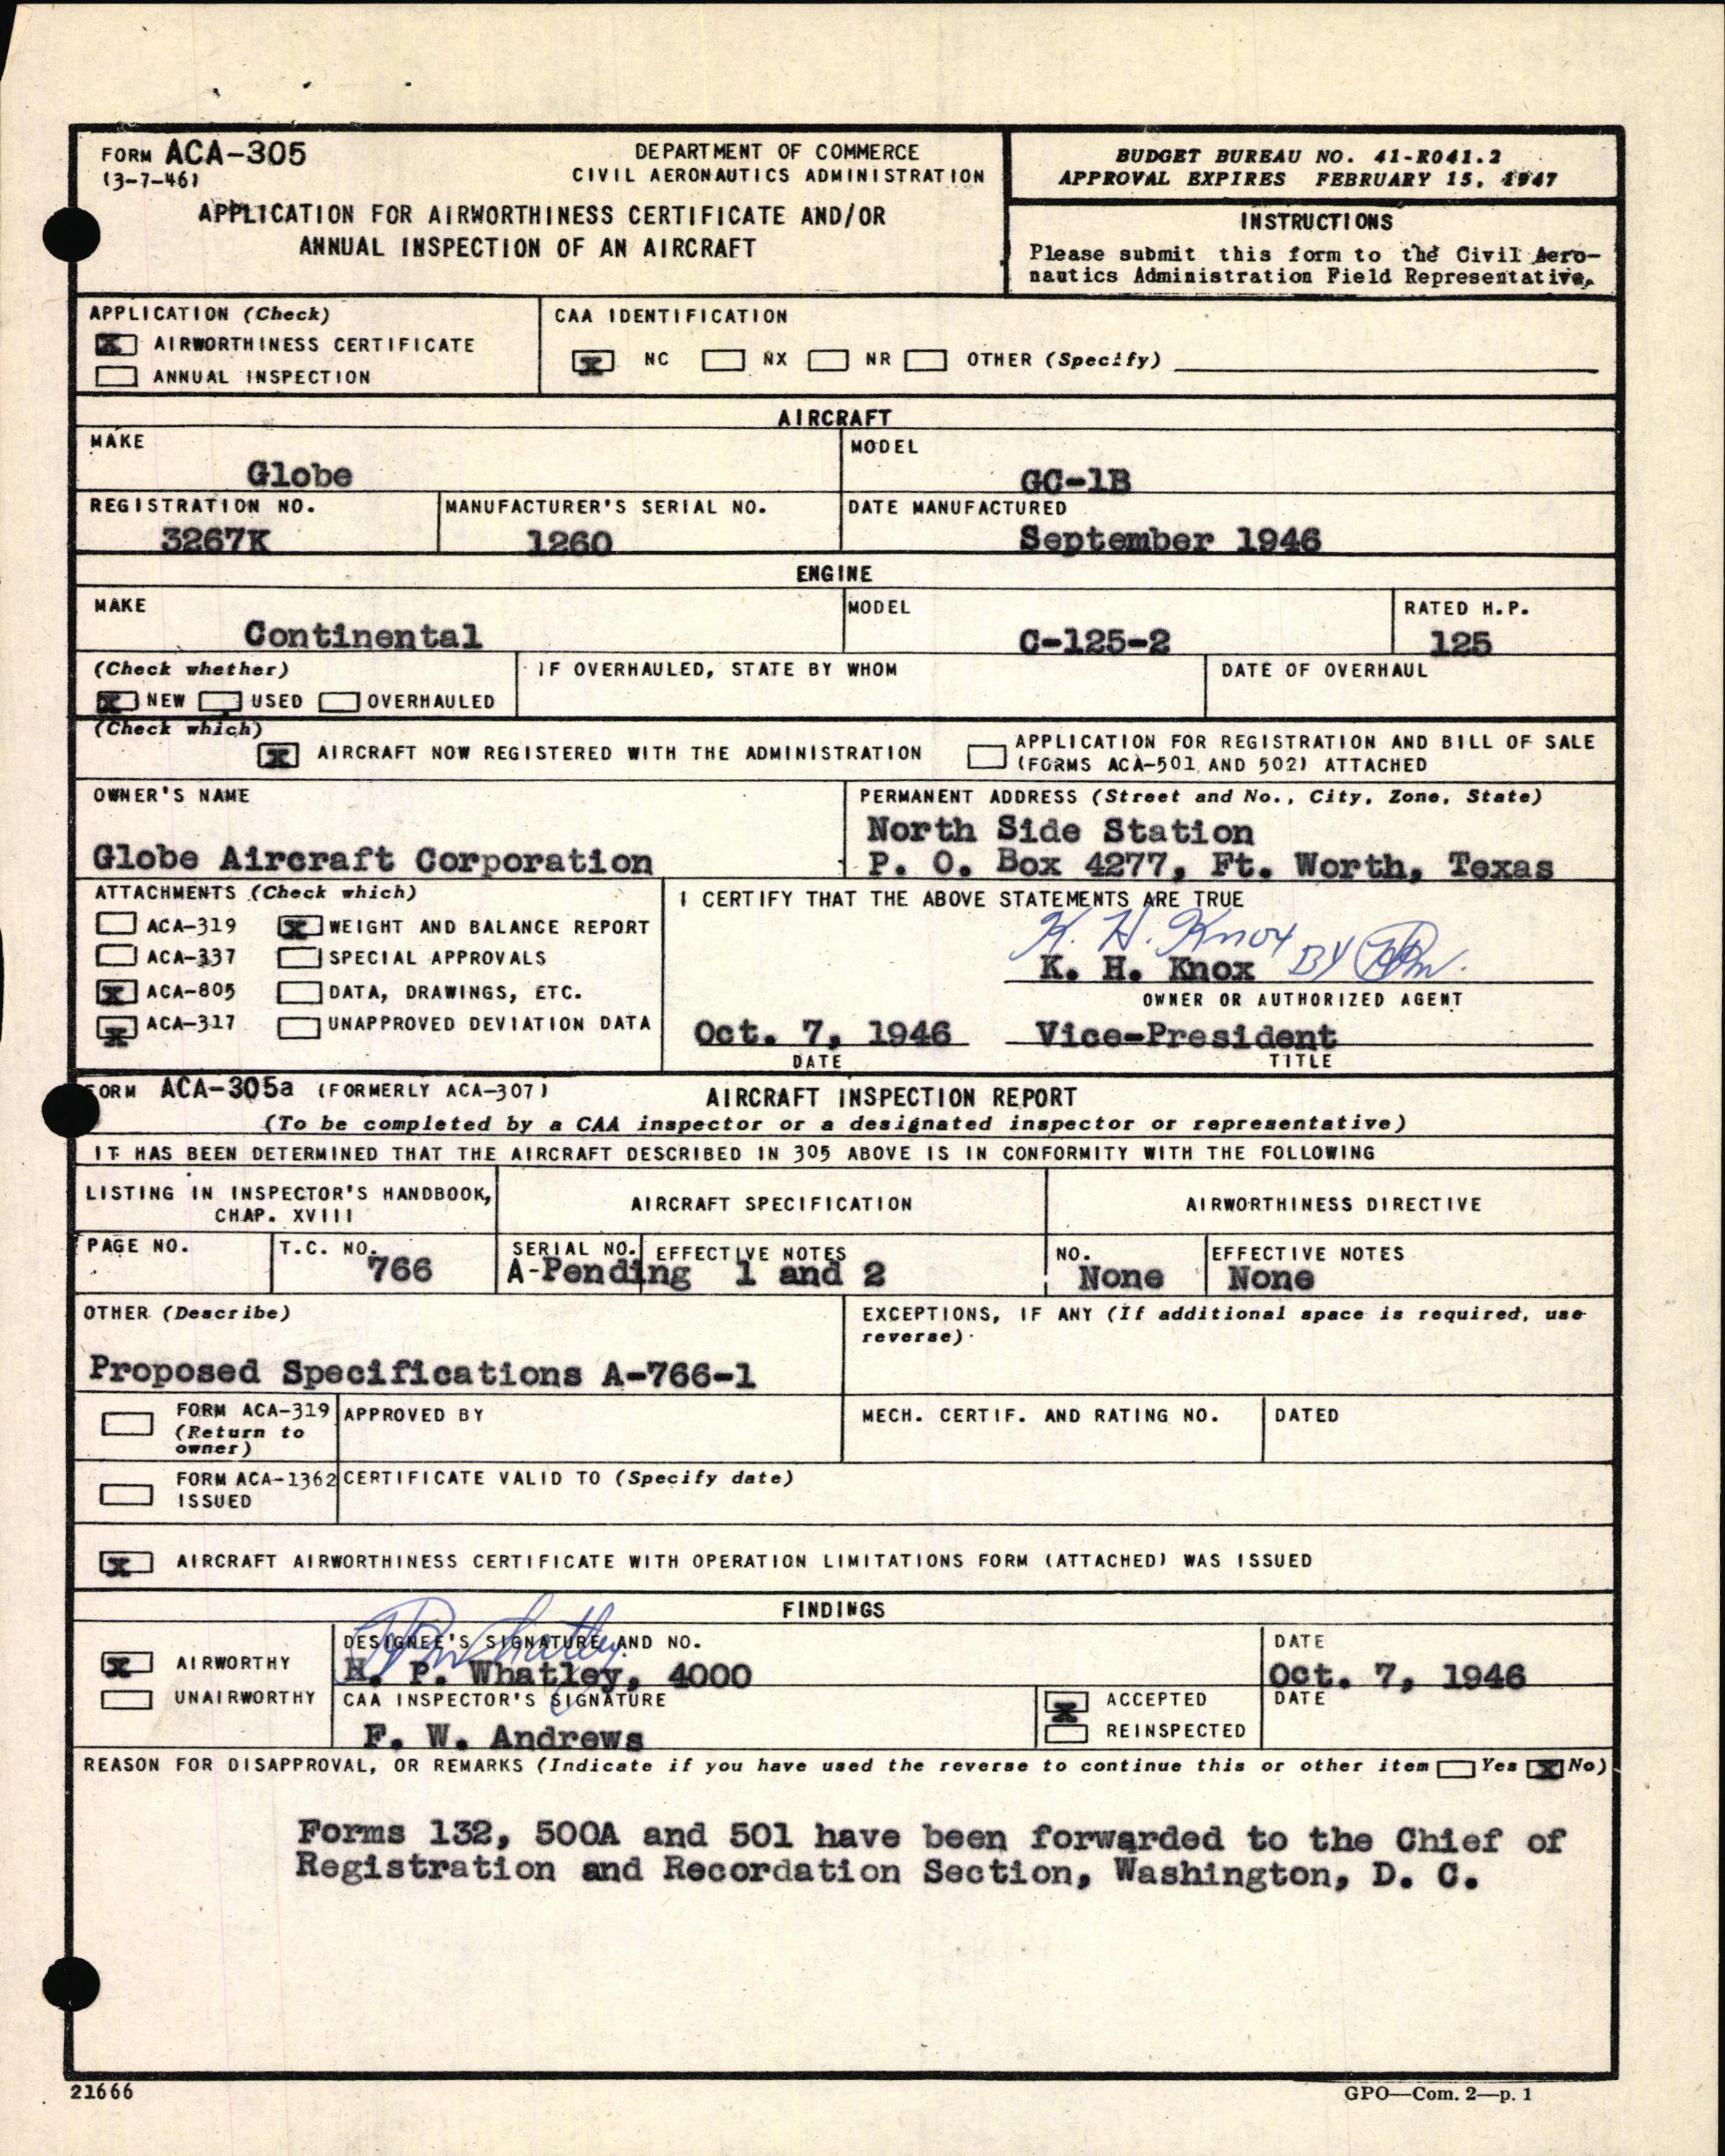 FORM ACA-305
(3-7-46)
DEPARTMENT OF COMMERCE
CIVIL AERONAUTICS ADMINISTRATION
APPLICATION FOR AIRWORTHINESS CERTIFICATE AND/OR
ANNUAL INSPECTION OF AN AIRCRAFT
BUDGET BUREAU NO. 41-R041.2
APPROVAL EXPIRES FEBRUARY 15, 1947
INSTRUCTIONS
Please submit this form to the Civil Aero-
nautics Administration Field Representative.
APPLICATION (Check)
X AIRWORTHINESS CERTIFICATE
ANNUAL INSPECTION
CAA IDENTIFICATION
X NC NX NR OTHER (Specify)
AIRCRAFT
MAKE
Globe
MODEL
GC-1B
REGISTRATION NO.
3267K
MANUFACTURER'S SERIAL NO.
1260
DATE MANUFACTURED
September 1946
ENGINE
MAKE
Continental
MODEL
C-125-2
RATED H.P.
125
(Check whether)
X NEW USED OVERHAULED
IF OVERHAULED, STATE BY WHOM
DATE OF OVERHAUL
(Check which)
X AIRCRAFT NOW REGISTERED WITH THE ADMINISTRATION
APPLICATION FOR REGISTRATION AND BILL OF SALE
(FORMS ACA-501 AND 502) ATTACHED
OWNER'S NAME
Globe Aircraft Corporation
PERMANENT ADDRESS (Street and No., City, Zone, State)
North Side Station
P. O. Box 4277, Ft. Worth, Texas
ATTACHMENTS (Check which)
ACA-319 X WEIGHT AND BALANCE REPORT
ACA-337 SPECIAL APPROVALS
X ACA-805 DATA, DRAWINGS, ETC.
X ACA-317 UNAPPROVED DEVIATION DATA
I CERTIFY THAT THE ABOVE STATEMENTS ARE TRUE
K. H. Knox BY
K. H. Knox
OWNER OR AUTHORIZED AGENT
Oct. 7, 1946 Vice-President
DATE TITLE
FORM ACA-305a (FORMERLY ACA-307) AIRCRAFT INSPECTION REPORT
(To be completed by a CAA inspector or a designated inspector or representative)
IT HAS BEEN DETERMINED THAT THE AIRCRAFT DESCRIBED IN 305 ABOVE IS IN CONFORMITY WITH THE FOLLOWING
LISTING IN INSPECTOR'S HANDBOOK,
CHAP. XVIII
AIRCRAFT SPECIFICATION
AIRWORTHINESS DIRECTIVE
PAGE NO.
T.C. NO.
766
SERIAL NO. EFFECTIVE NOTES
A-Pending 1 and 2
NO.
None
EFFECTIVE NOTES
None
OTHER (Describe)
Proposed Specifications A-766-1
EXCEPTIONS, IF ANY (If additional space is required, use
reverse)
FORM ACA-319
(Return to
owner)
APPROVED BY
MECH. CERTIF. AND RATING NO.
DATED
FORM ACA-1362
ISSUED
CERTIFICATE VALID TO (Specify date)
X AIRCRAFT AIRWORTHINESS CERTIFICATE WITH OPERATION LIMITATIONS FORM (ATTACHED) WAS ISSUED
FINDINGS
X AIRWORTHY
UNAIRWORTHY
DESIGNEE'S SIGNATURE AND NO.
H P Whatley
H. P. Whatley, 4000
DATE
Oct. 7, 1946
CAA INSPECTOR'S SIGNATURE
F. W. Andrews
X ACCEPTED
REINSPECTED
DATE
REASON FOR DISAPPROVAL, OR REMARKS (Indicate if you have used the reverse to continue this or other item Yes X No)
Forms 132, 500A and 501 have been forwarded to the Chief of
Registration and Recordation Section, Washington, D. C.
21666
GPO—Com. 2—p. 1